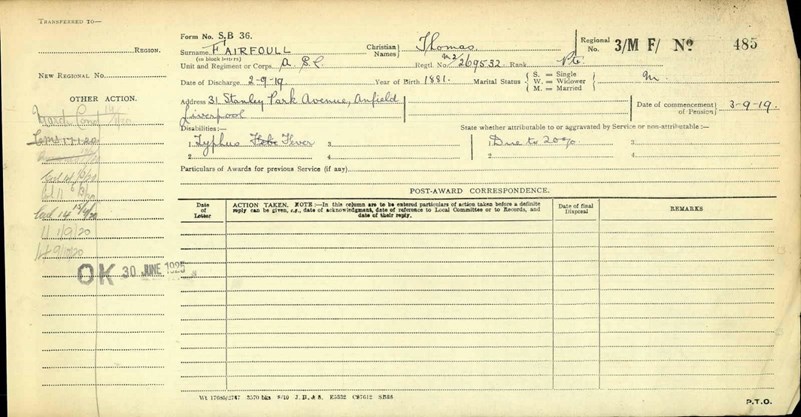 TRANSFERRED TO—
REGION.
NEW REGIONAL NO.
OTHER ACTION.
OK 30 JUNE 1925
Form No. S.B 36.
Surname FAIRFOULL
(in block letters)
Christian Names Thomas.
Regional No. 3/M F/ No 485
Unit and Regiment or Corps. A.S.C.
Regtl. No. M2/269532 Rank Pte.
Date of Discharge 2-9-19. Year of Birth 1881. Marital Status S. = Single W. = Widower M. = Married M.
Address 31 Stanley Park Avenue, Anfield
Liverpool
Date of commencement of Pension 3-9-19.
Disabilities:— State whether attributable to or aggravated by Service or non-attributable:—
1 Typhus Fever 3 1 Due to 20% 3
2 4 2 4
Particulars of Awards for previous Service (if any).
POST-AWARD CORRESPONDENCE.
Date of Letter
ACTION TAKEN. NOTE:—In this column are to be entered particulars of action taken before a definite
reply can be given, e.g., date of acknowledgment, date of reference to Local Committee or to Records, and
date of their reply.
Date of final Disposal
REMARKS
P.T.O.